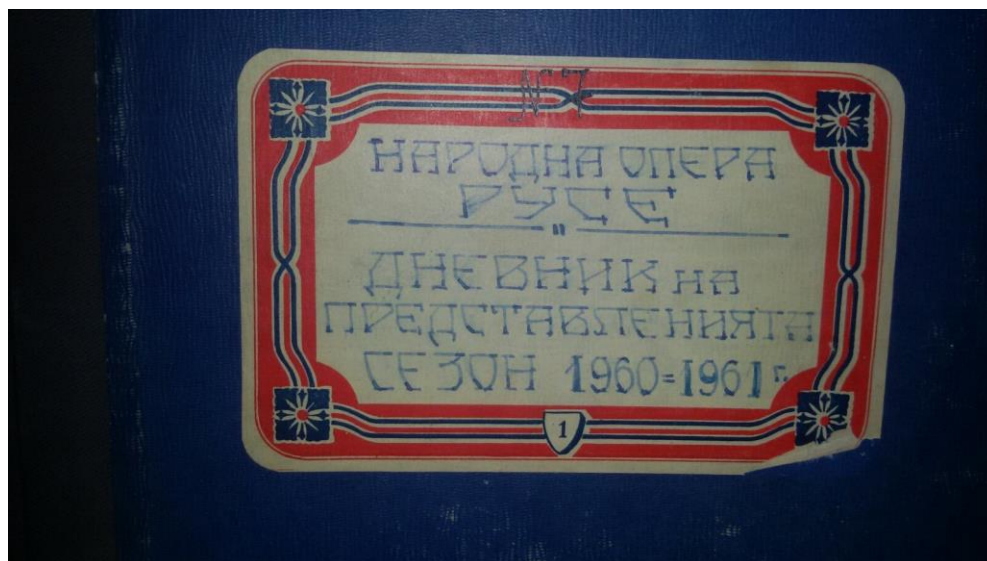 № 7
НАРОДНА ОПЕРА
РУСЕ
"
ДНЕВНИК НА
ПРЕДСТАВЛЕНИЯТА
СЕЗОН 1960=1961 г.
1